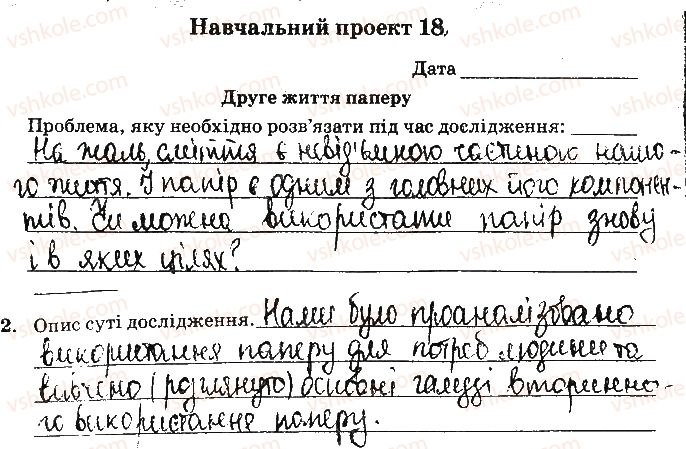 Навчальний проект 18
Дата
Друге життя паперу
Проблема, яку необхідно розв'язати під час дослідження:
На жаль, сміття є невід'ємною частиною нашо-
го життя. І папір є одним з головних його компонен-
тів. Чи можна використати папір знову
і в яких цілях?
2. Опис суті дослідження. Нами було проаналізовано
використання паперу для потреб людини та
вивчено (розглянуто) основні галузі вторинно-
го використання паперу.